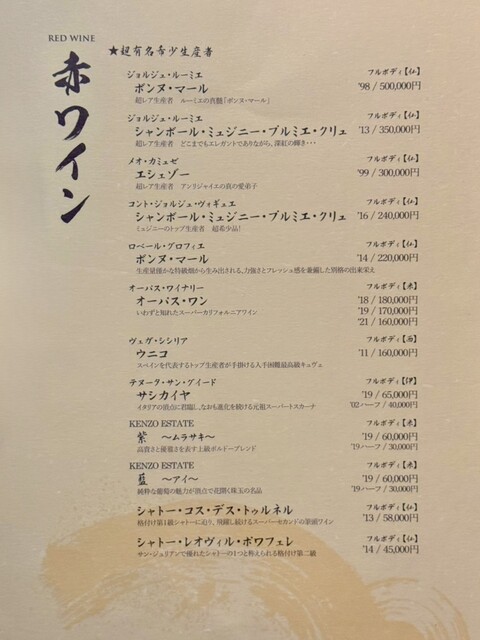 RED WINE
赤ワイン
★超有名希少生産者
ジョルジュ・ルーミエ フルボディ【仏】
ボンヌ・マール '98 / 500,000円
超レア生産者 ルーミエの真髄「ボンヌ・マール」
ジョルジュ・ルーミエ フルボディ【仏】
シャンボール・ミュジニー・プルミエ・クリュ '13 / 350,000円
超レア生産者 どこまでもエレガントでありながら、深紅の輝き・・・
メオ・カミュゼ フルボディ【仏】
エシェゾー '99 / 300,000円
超レア生産者 アンリジャイエの真の愛弟子
コント・ジョルジュ・ヴォギュエ フルボディ【仏】
シャンボール・ミュジニー・プルミエ・クリュ '16 / 240,000円
ミュジニーのトップ生産者 超希少品！
ロベール・グロフィエ フルボディ【仏】
ボンヌ・マール '14 / 220,000円
生産量僅かな特級畑から生み出される、力強さとフレッシュ感を兼備した別格の出来栄え
オーパス・ワイナリー フルボディ【米】
オーパス・ワン '18 / 180,000円
いわずと知れたスーパーカリフォルニアワイン '19 / 170,000円
'21 / 160,000円
ヴェガ・シシリア フルボディ【西】
ウニコ '11 / 160,000円
スペインを代表するトップ生産者が手掛ける入手困難最高級キュヴェ
テヌータ・サン・グイード フルボディ【伊】
サシカイヤ '19 / 65,000円
イタリアの頂点に君臨し、なおも進化を続ける元祖スーパートスカーナ '02 ハーフ / 40,000円
KENZO ESTATE フルボディ【米】
紫 ～ムラサキ～ '19 / 60,000円
高貴さと優雅さを表す上級ボルドーブレンド '19 ハーフ / 30,000円
KENZO ESTATE フルボディ【米】
藍 ～アイ～ '19 / 60,000円
純粋な葡萄の魅力が頂点で花開く珠玉の名品 '19 ハーフ / 30,000円
フルボディ【仏】
シャトー・コス・デス・トゥルネル '13 / 58,000円
格付け第1級シャトーに迫り、飛躍し続けるスーパーセカンドの筆頭ワイン
フルボディ【仏】
シャトー・レオヴィル・ポワフェレ '14 / 45,000円
サン・ジュリアンで優れたシャトーの1つと称えられる格付け第二級